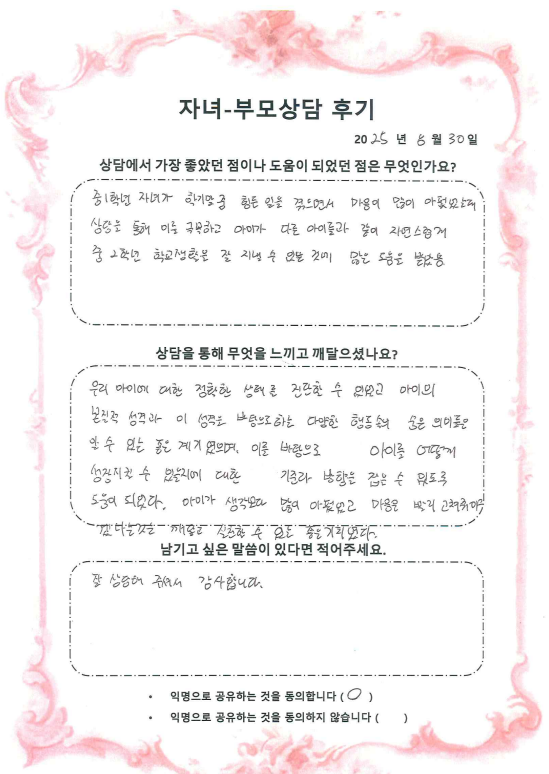 자녀-부모상담 후기
2025 년 8 월 30일
상담에서 가장 좋았던 점이나 도움이 되었던 점은 무엇인가요?
중1학년 자녀가 학기말 중 힘든 일을 겪으면서 마음이 많이 아팠었는데
상담을 통해 이를 극복하고 아이가 다른 아이들과 같이 자연스럽게
중 2학년 학교생활을 잘 지낼 수 있는 것에 많은 도움을 받았음
상담을 통해 무엇을 느끼고 깨달으셨나요?
우리 아이에 대한 정확한 상태를 진단할 수 있었고 아이의
본질적 성격과 이 성격을 바탕으로하는 다양한 행동속의 숨은 의미들을
알 수 있는 좋은 계기였으며, 이를 바탕으로 아이를 어떻게
성장시킬 수 있을지에 대한 기준과 방향을 잡을 수 있도록
도움이 되었다. 아이가 생각보다 많이 아팠었고 마음은 빨리 고쳐줘야
한다는 것을 깨닫고 실천할 수 있는 좋은 기회였다.
남기고 싶은 말씀이 있다면 적어주세요.
잘 상담해 주셔서 감사합니다.
• 익명으로 공유하는 것을 동의합니다 ( O )
• 익명으로 공유하는 것을 동의하지 않습니다 ( )